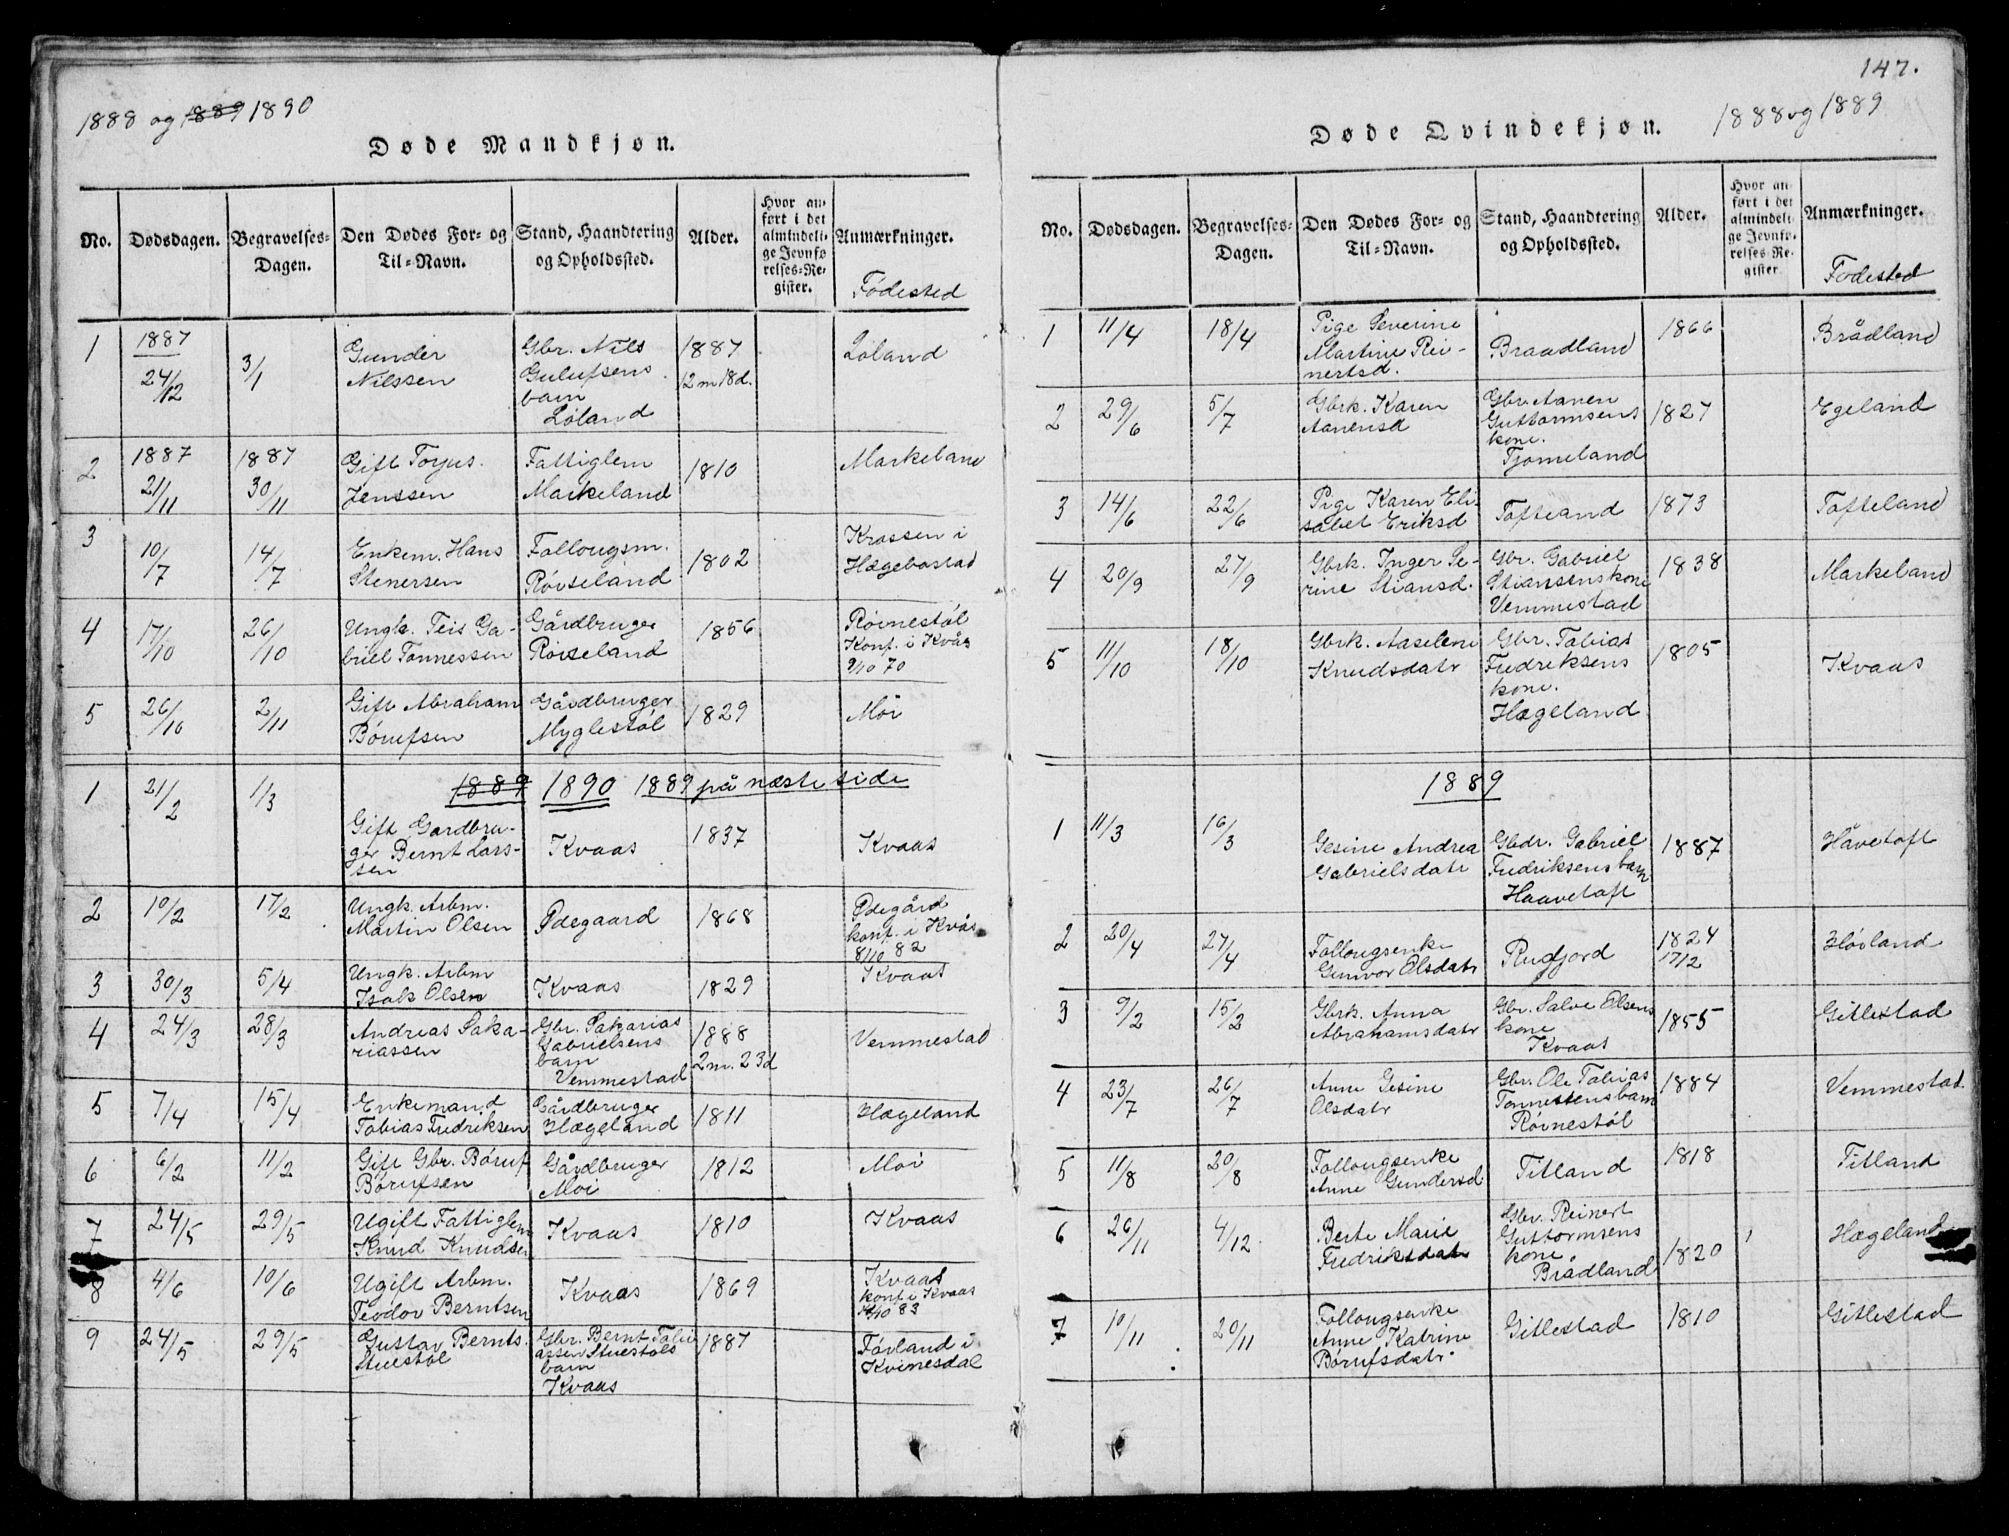 1888 og 1889 1890
Døde Mandkjøn.
No. Dødsdagen. Begravelses-Dagen. Den Dødes For- og Til-Navn. Stand, Haandtering og Opholdssted. Alder. Hvor anført i det almindelige Jevnførelses-Register. Anmærkninger. Fødested
1 1887 24/12 3/1 Gunder Nilssen Gbr. Nils Gulufsens barn Løland 1887 12 m 18 d. Løland
2 1887 21/11 1887 30/11 Gift Torjus Jenssen Fattiglem Markeland 1810 Markeland
3 10/7 14/7 Enkem. Hans Stenersen Follougsm. Røiseland 1802 Krossen i Hægebostad
4 17/10 26/10 Ungk. Teis Gabriel Tønnessen Gårdbruger Røiseland 1856 Røinestøl Konf. i Kvås 9/10 70
5 26/10 2/11 Gift Abraham Børufsen Gårdbruger Myglestøl 1829 Moi
1889 1890 1889 på næste side
1 21/2 1/3 Gift Gardbruger Bernt Larssen Kvaas 1837 Kvaas
2 10/2 17/2 Ungk. Arbm. Martin Olsen Ødegaard 1868 Ødegård konf. i Kvås 8/10 82
3 30/3 5/4 Ungk. Arbm Isak Olsen Kvaas 1829 Kvaas
4 24/3 28/3 Andreas Sakariassen Gbr. Sakarias Gabrielsens barn Vemmestad 1888 2 m. 23 d Vemmestad
5 7/4 15/4 Enkemand Tobias Fredriksen Gårdbruger Hægeland 1811 Hægeland
6 6/2 11/2 Gift Gbr. Børuf Børufsen Gårdbruger Moi 1812 Moi
7 24/5 29/5 Ugift Fattiglem Knud Knudsen Kvaas 1810 Kvaas
8 4/6 10/6 Ugift Arbm. Teodor Berntsen Kvaas 1869 Kvaas konf i Kvaas /10 83
9 24/5 29/5 Gustav Bernts. Stuestøl Gbr. Bernt Tobiassen Stuestøls barn Kvaas 1887 Førland i Kvinesdal
147.
Døde Qvindekjøn. 1888 og 1889
No. Dødsdagen. Begravelses-Dagen. Den Dødes For- og Til-Navn. Stand, Haandtering og Opholdssted. Alder. Hvor anført i det almindelige Jevnførelses-Register Anmærkninger. Fødested
1 11/4 18/4 Pige Severine Martine Reinertsd. Braadland 1866 Brådland
2 29/6 5/7 Gbrk. Karen Aanensd Gbr. Aanen Guttormsens kone. Tjomeland 1827 Egeland
3 14/6 22/6 Pige Karen Elisabet Eriksd Tofteand 1873 Tofteland
4 20/9 27/9 Gbrk. Inger Serine Stiansd. Gbr. Gabriel Stiansens kone Vemmestad 1838 Markeland
5 11/10 18/10 Gbrk. Aaselene Knudsdatr Gbr. Tobias Fredriksens kone. Hægeland 1805 Kvaas
1889
1 11/3 16/3 Gesine Andrea Gabrielsdatr Gbdr. Gabriel Fredriksens barn Haavetoft 1887 Håvetoft
2 20/4 27/4 Follougsenke Gunvor Olsdatr Rugjord 1824 17/2 Høiland
3 9/2 15/2 Gbrk. Anna Abrahamsdatr Gbr. Salve Olsens kone Kvaas 1855 Gitlestad
4 23/7 26/7 Anne Gesine Olsdatr Gbr. Ole Tobias Tønnessens barn Røinestøl 1884 Vemmestad
5 11/8 20/8 Follougsenke Anne Gundersd Titland 1818 Titland
6 26/11 4/12 Berte Marie Fredriksdatr Gbr. Reinert Guttormsens kone Brådland 1820 Hægeland
7 10/11 20/11 Follougsenke Anne Katrine Børufsdatr Gitlestad 1810 Gitlestad